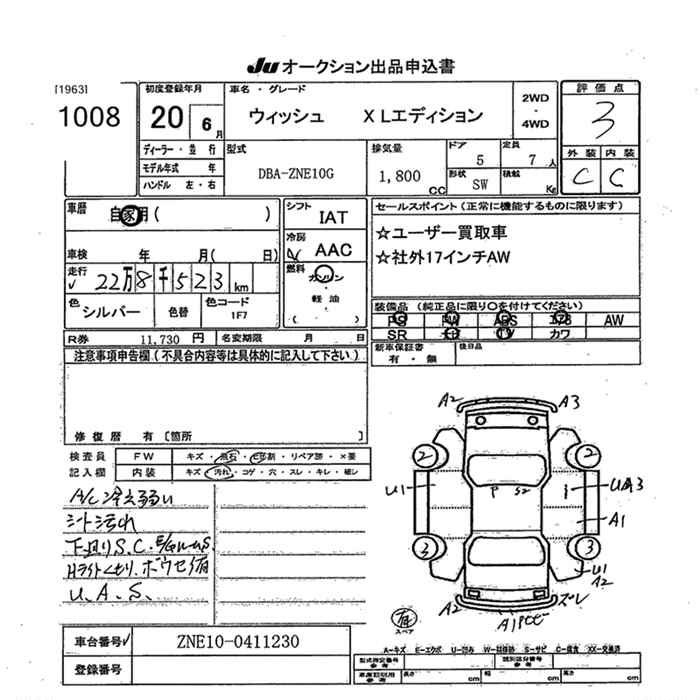 Ju オークション出品申込書
[1963]
1008
初度登録年月
20 6月
車名・グレード
ウィッシュ XLエディション
2WD
・
4WD
評価点
3
ディーラー・並行
モデル年式 年
ハンドル 左・右
型式
DBA-ZNE10G
排気量
1,800 CC
ドア
5
定員
7 人
形状
SW
積載
Kg
外装 内装
C C
車歴
自家用 ( )
車検 年 月( 日)
走行
22万8千523 km
色
シルバー
色替
色コード
1F7
シフト
IAT
冷房
AAC
燃料
ガソリン
・
軽油
( )
セールスポイント (正常に機能するものに限ります)
☆ユーザー買取車
☆社外17インチAW
装備品 (純正品に限り○を付けてください)
PS PW ABS エアB AW
SR ナビ TV カワ
新車保証書
有・無
後日品
R券 11,730 円 名変期限 月 日
注意事項申告欄(不具合内容等は具体的に記入して下さい)
修復歴 有 [箇所 ]
検査員
記入欄
FW キズ・点石・ヒビ割・リペア跡・×要
内装 キズ・汚れ・コゲ・穴・スレ・キレ・破レ
A/C冷え弱い
シート汚れ
下廻りS.C.
Hライトくもり.
U.A.S.
A2 A3
2 2
U1 P S2 UA3
A1
3 3
U1
A2
A2 ズレ
有
スペア
A-キズ E-エクボ U-凹み W-補修跡 S-サビ C-腐食 XX-交換済
車台番号 ZNE10-0411230
登録番号
型式指定番号
参考
類別区分番号
参考
車庫証明用
参考
長さ cm 幅 cm 高さ cm